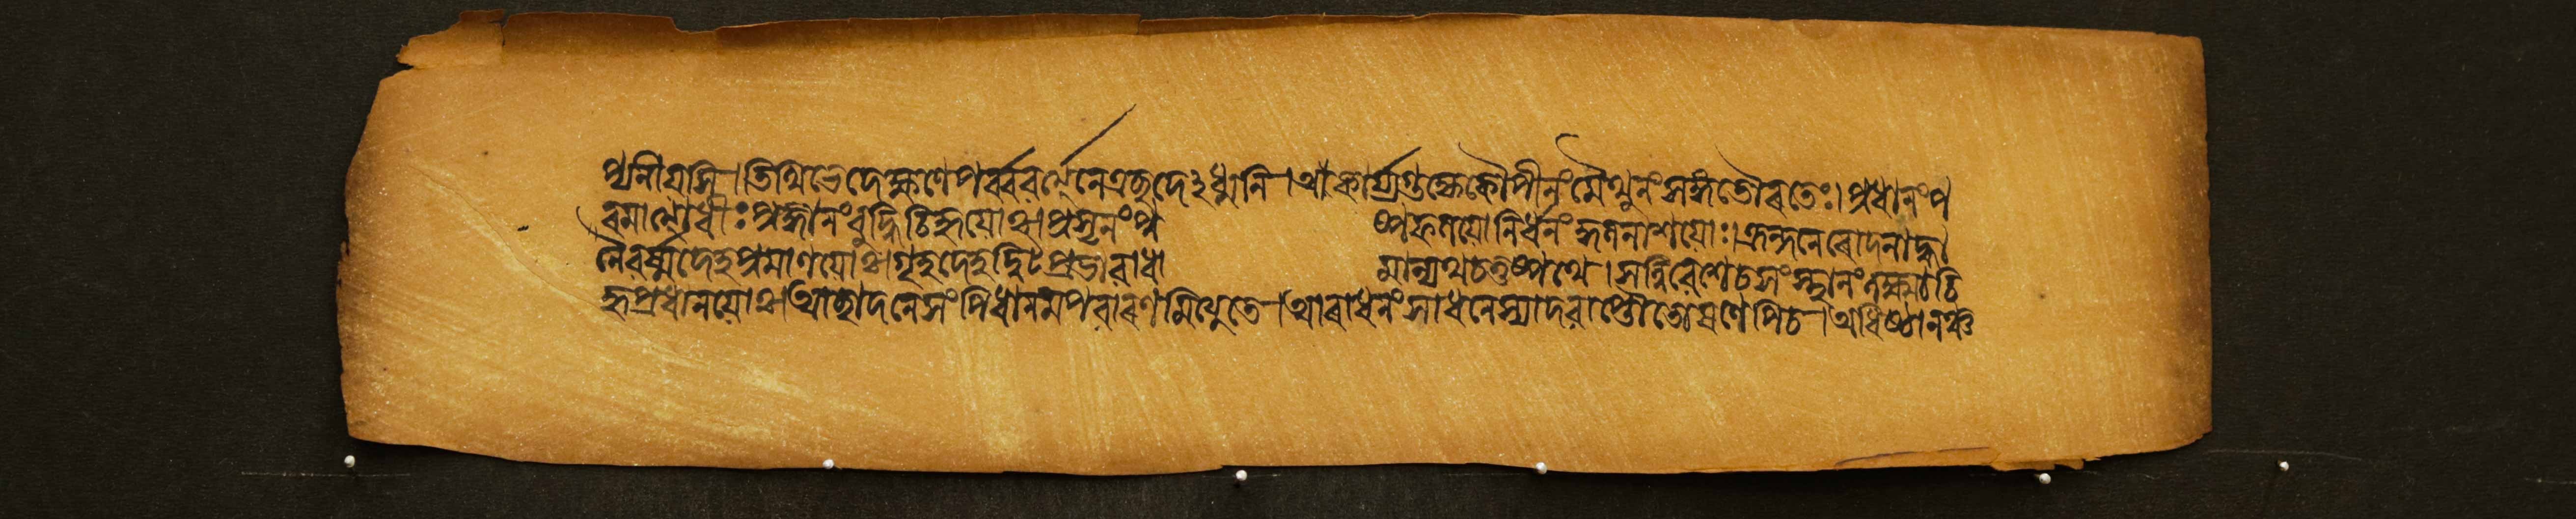 প্যণীয়সি । তিথিভেদে ক্ষণে পর্ব্ব বর্ত্ম নেত্রচ্ছদেঽধ্বনি । অকার্য্যগুহ্যে কৌপীনং মৈথুনং সঙ্গতৌ ৰতেঃ । প্রধানং প
ৰমাত্মা ধীঃ প্রজ্ঞানং বুদ্ধিচিহ্নয়োঃ । প্রসূনং পুষ্পফলয়োর্নিধনং কুলনাশয়োঃ । ক্রন্দনে ৰোদনাহ্বা
নে বর্ষ্ম দেহপ্রমাণয়োঃ । গৃহদেহত্বিট্প্রভাবা ধামান্যথ চতুষ্পথে । সন্নিবেশে চ সংস্থানং লক্ষ্ম চি
হ্নপ্রধানয়োঃ । আচ্ছাদনে সংপিধানমপবাৰণমিত্যুভে । আৰাধনং সাধনে স্যাদবাপ্তৌ তোষণেপি চ । অধিষ্ঠানঞ্চ